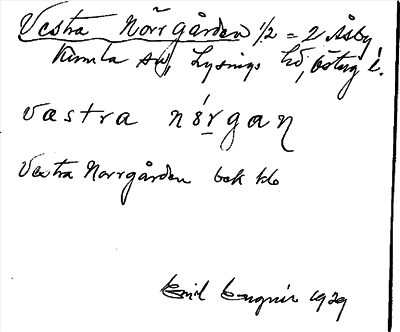 Vestra Norrgården 1/2 = 2 Åsby
Kumla sn, Lysings hd, Östg l.
væstra nórgaɳ
Vestra Norrgården bek kb
Emil 1929